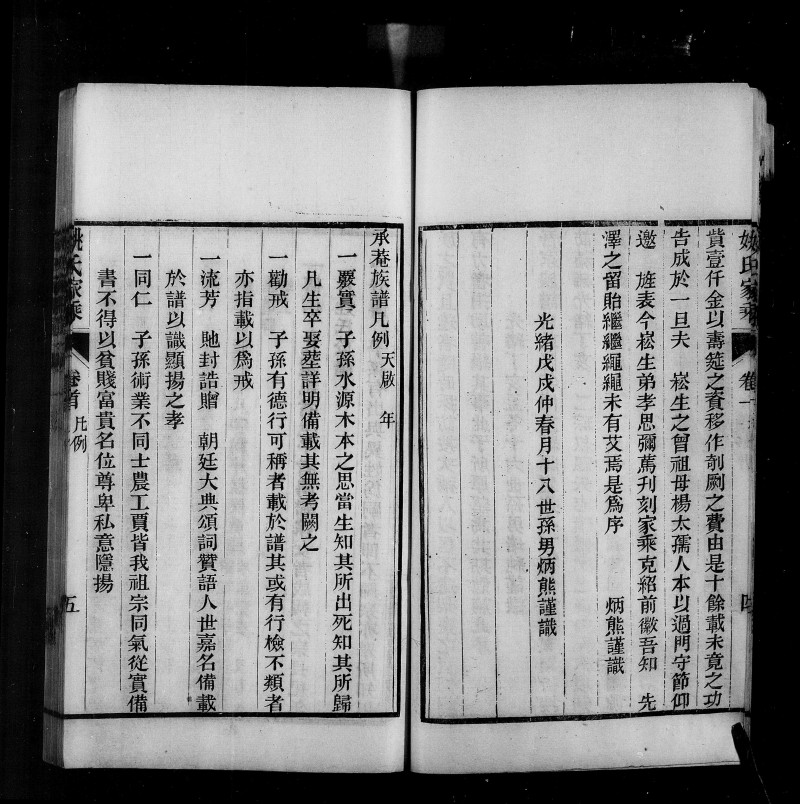 姚氏家乘
卷
貲壹仟金以壽筵之資移作剞劂之費由是十餘載未竟之功
告成於一旦夫 崧生之曾祖母楊太孺人本以過門守節仰
邀 旌表今崧生弟孝思彌篤刊刻家乘克紹前徽吾知 先
澤之留貽繼繼繩繩未有艾焉是爲序 炳熊謹識
光緒戊戌仲春月十八世孫男炳熊謹識
承菴族譜凡例 天啟 年
一覈實 子孫水源木本之思當生知其所出死知其所歸
凡生卒娶塟詳明備載其無考闕之
一勸戒 子孫有德行可稱者載於譜其或有行檢不類者
亦指載以爲戒
一流芳 貤封誥贈 朝廷大典頌詞贊語人世嘉名備載
於譜以識顯揚之孝
一同仁 子孫術業不同士農工賈皆我祖宗同氣從實備
書不得以貧賤富貴名位尊卑私意隱揚
姚氏家乘
卷首 凡例
五